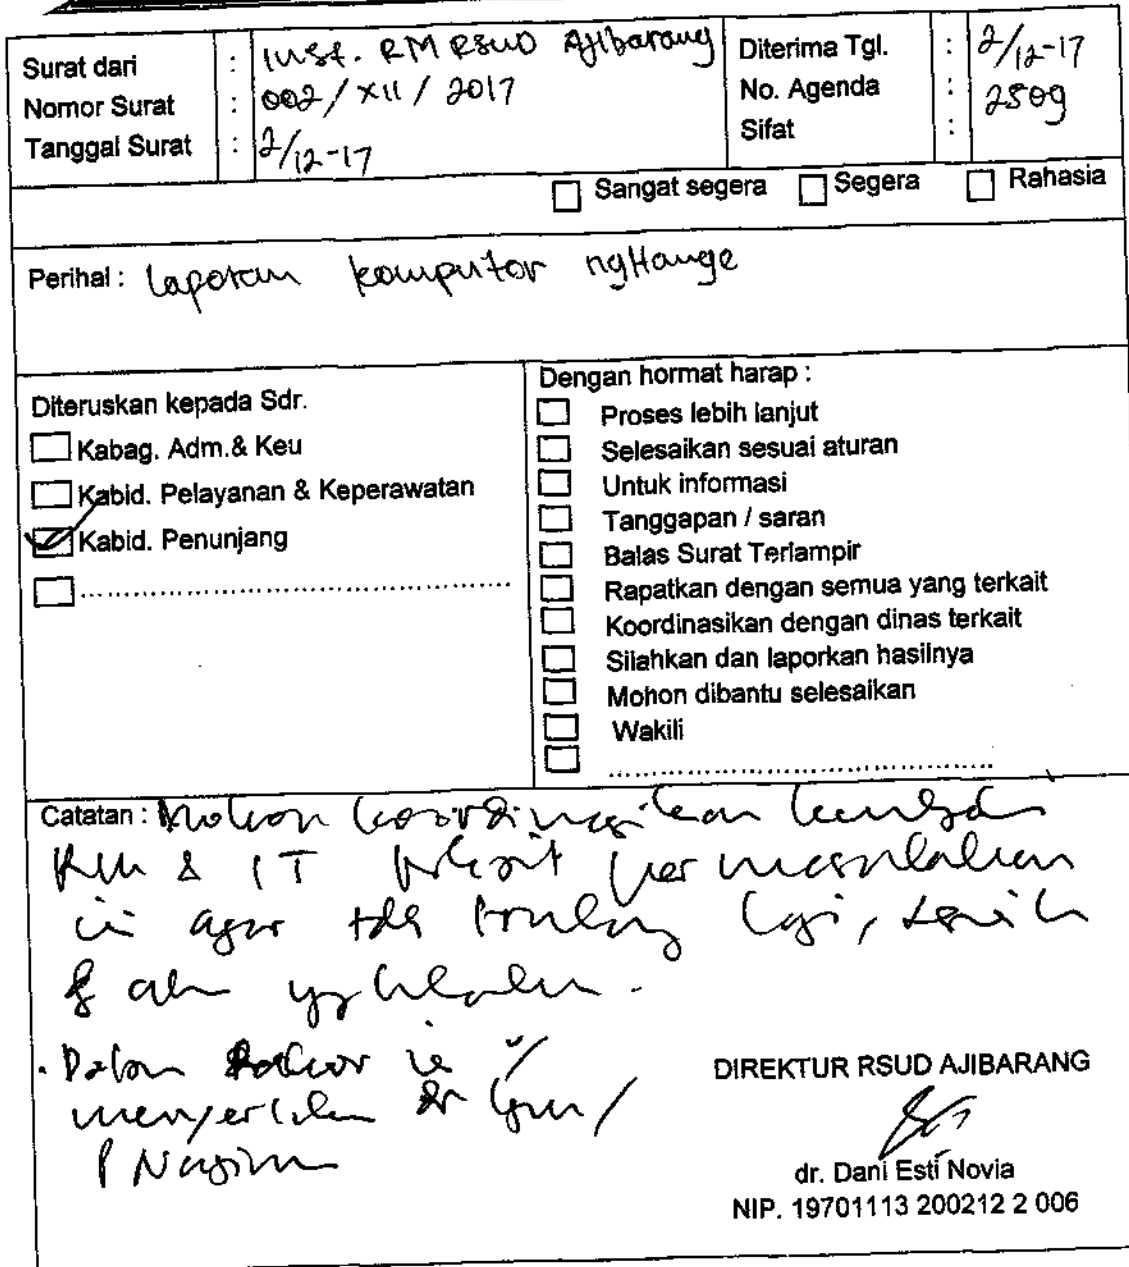 Surat dari : Inst. RM RSUD Ajibarang
Nomor Surat : 002 / XII / 2017
Tanggal Surat : 2/12-17
Diterima Tgl. : 2/12-17
No. Agenda : 2509
Sifat :
Sangat segera Segera Rahasia
Perihal : Laporan komputor ngHange
Diteruskan kepada Sdr.
Kabag. Adm.& Keu
Kabid. Pelayanan & Keperawatan
Kabid. Penunjang
Dengan hormat harap :
Proses lebih lanjut
Selesaikan sesuai aturan
Untuk informasi
Tanggapan / saran
Balas Surat Terlampir
Rapatkan dengan semua yang terkait
Koordinasikan dengan dinas terkait
Silahkan dan laporkan hasilnya
Mohon dibantu selesaikan
Wakili
Catatan : Mohon koordinasikan
RM & IT permasalahan
ini agar tdk lagi,
yg
Dalam ini
menyertakan dr
DIREKTUR RSUD AJIBARANG
dr. Dani Esti Novia
NIP. 19701113 200212 2 006